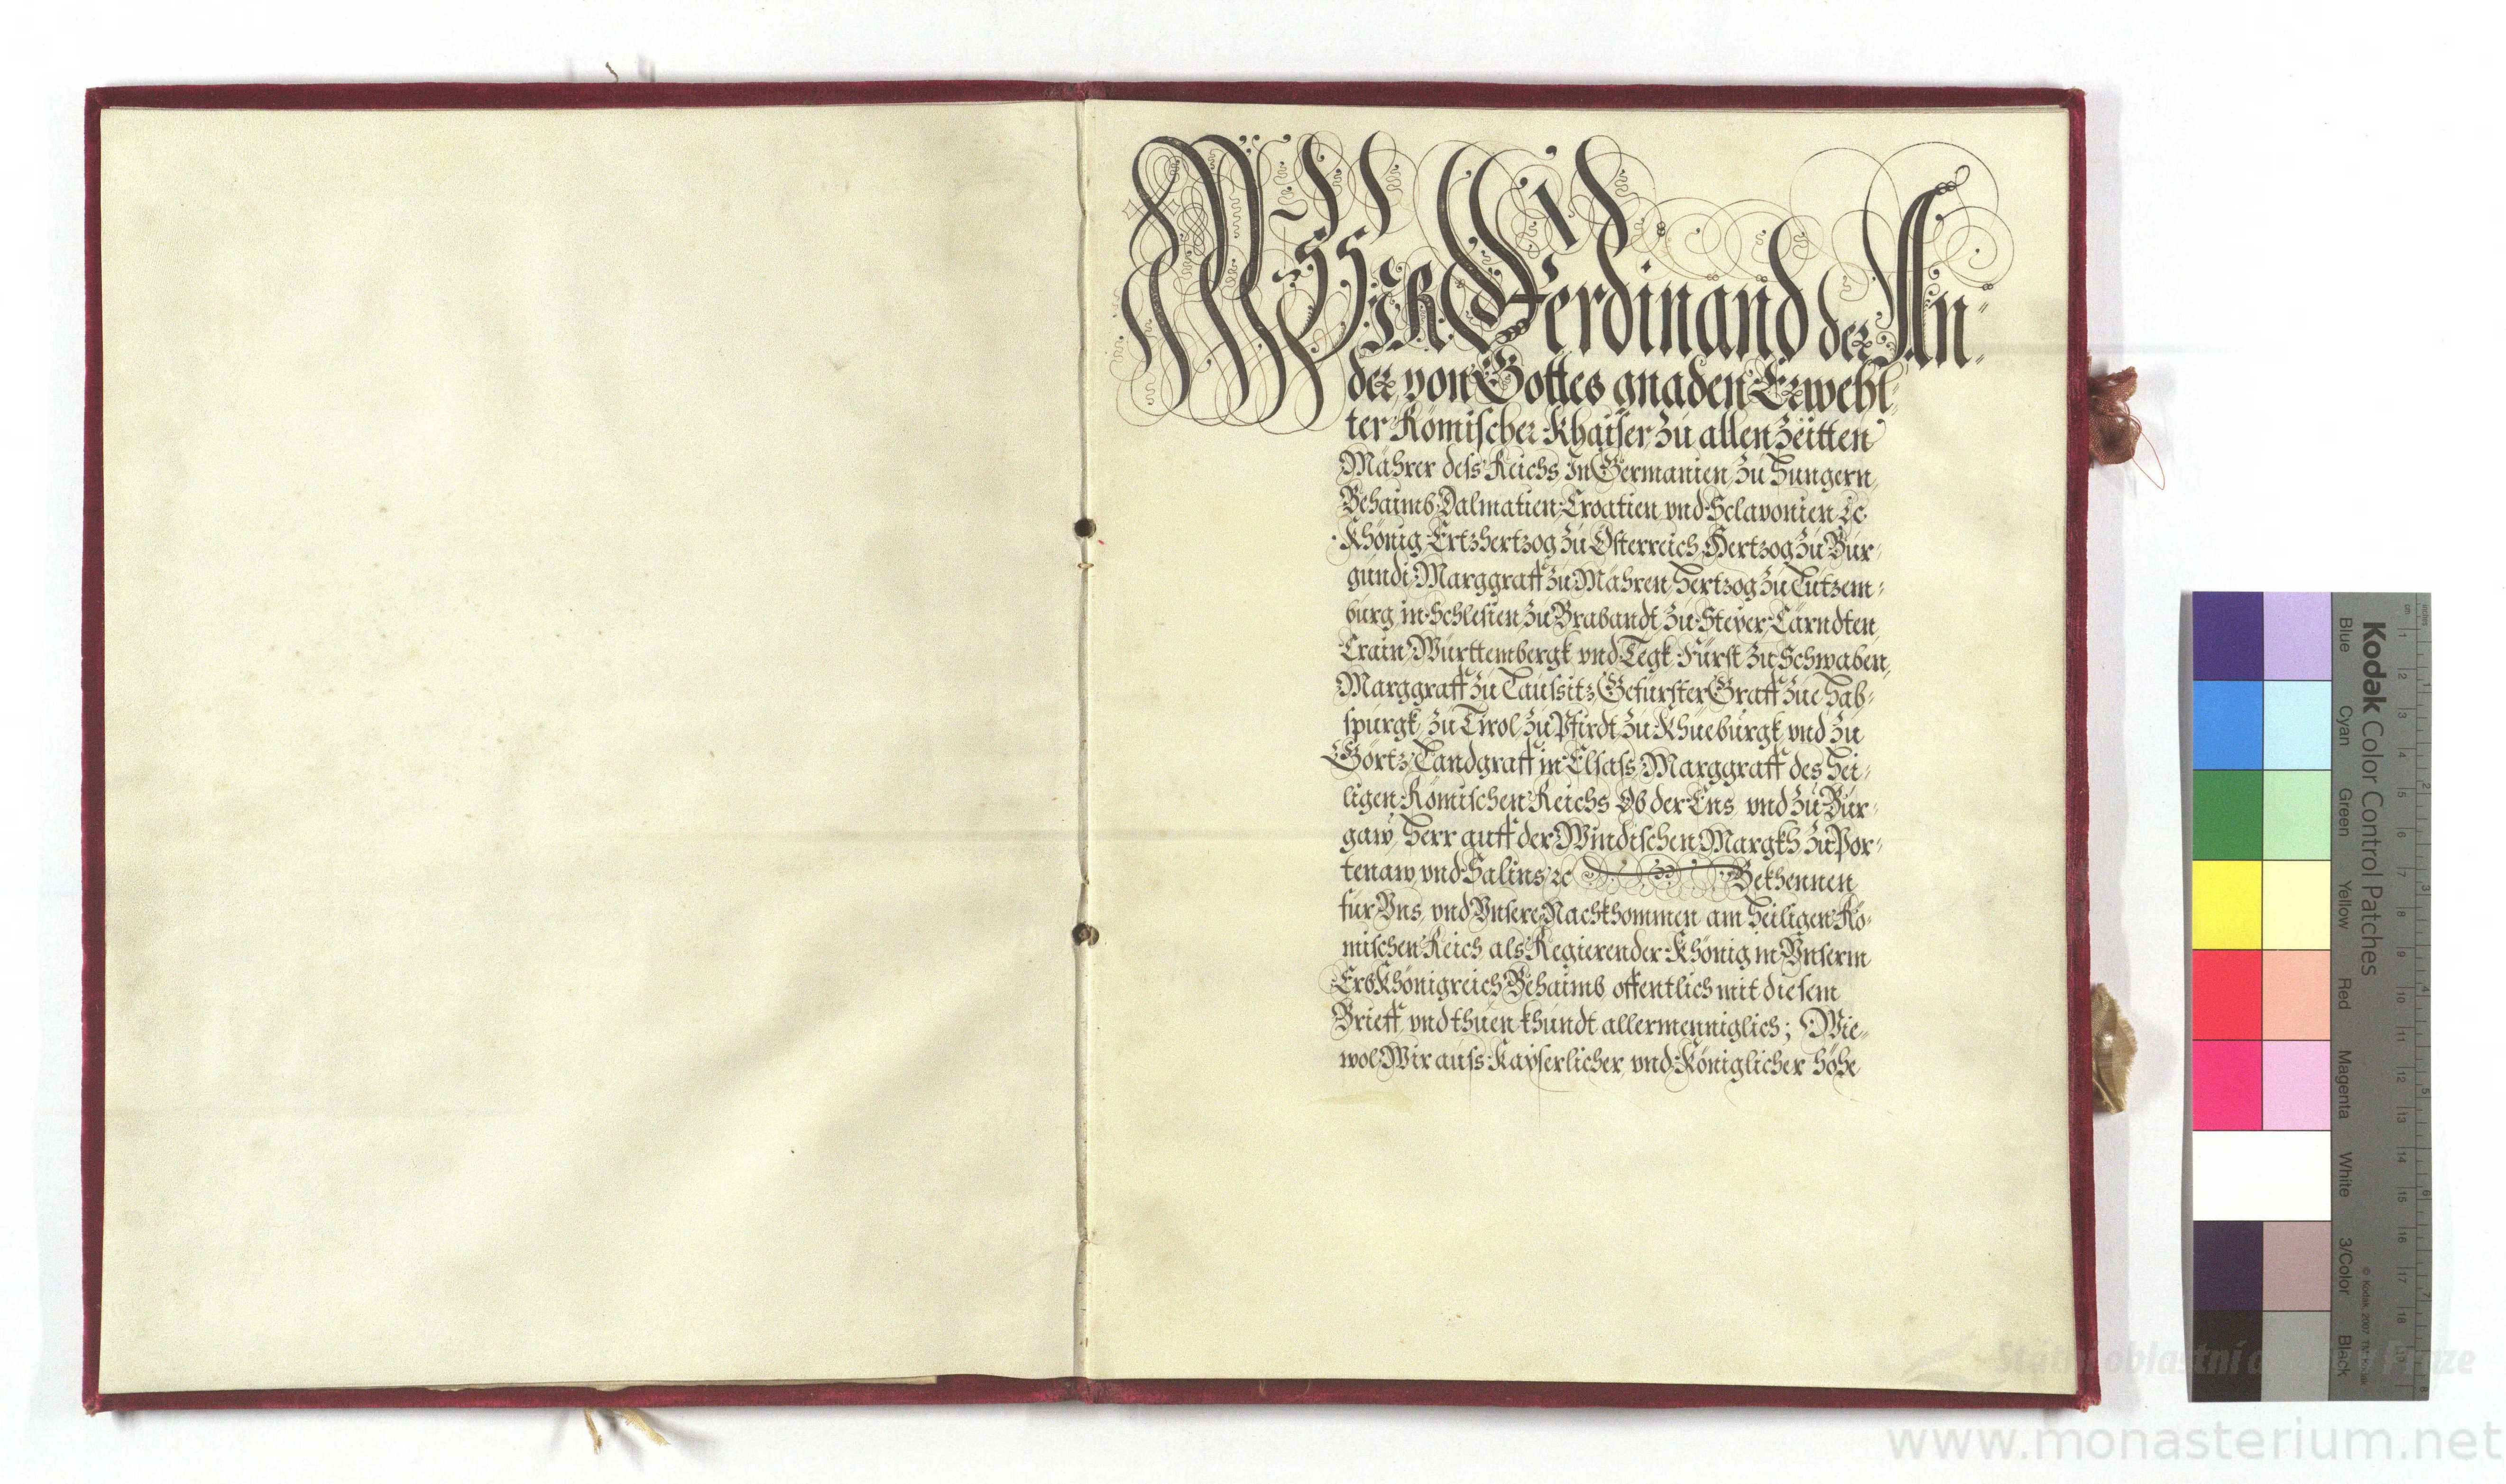 WIR Ferdinand der An-
der, von Gottes gnaden Erwehl-
ter Römischer Khaiser, zu allen Zeitten
Mährer dess Reichs, in Germanien, zu Hungern,
Behaimb, Dalmatien, Croatien, vnd Sclavonien, ꝛc.
Khönig, Ertzhertzog zu Österreich, Hertzog zu Bur-
gundi, Marggraff zu Mähren, Hertzog zu Lutzem-
burg, in Schlesien, zu Brabandt, zu Steyer, Cärndten,
Crain, Württembergk, vnd Tegk, Fürst zu Schwaben,
Marggraff zu Laussitz, Gefürster Graff zue Hab-
spurgk, zu Tirol, zu Pfirdt, zu Khüeburgk, vnd zu
Görtz, Landgraff in Elsass, Marggraff des Hei-
ligen Römischen Reichs, Ob der Ens, vnd zu Bur-
gaw, Herr auff der Windischen Margkh, zu Por-
tenaw, vnd Salins, ꝛc. Bekhennen
für Vns, vnd Vnsere Nachkhommen, am Heiligen Rö-
mischen Reich, als Regierender Khönig in Vnserm
Erb Khönigreich Behaimb, offentlich mit diesem
Brieff, vnd thuen khundt allermenniglich; Wie-
wol Wir auss Kayserlicher, vnd Königlicher Höhe
Kodak Color Control Patches
Blue Cyan Green Yellow Red Magenta White 3/Color Black
© Kodak, 2007
www.monasterium.net